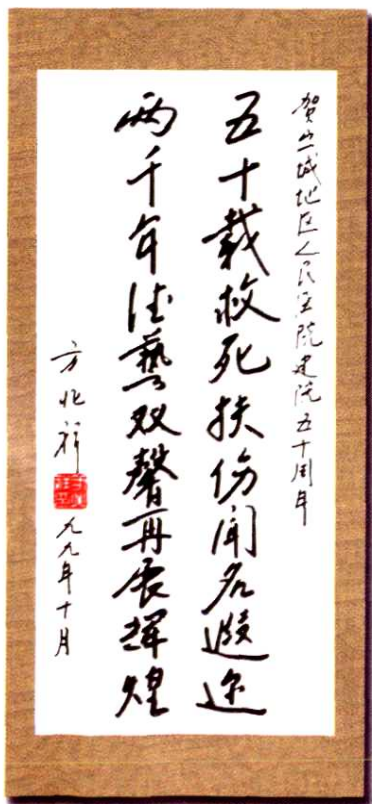 贺盐城地区人民医院建院五十周年
五十载救死扶伤闻名遐迩
两千年德艺双馨再展辉煌
方兆祥
九九年十月